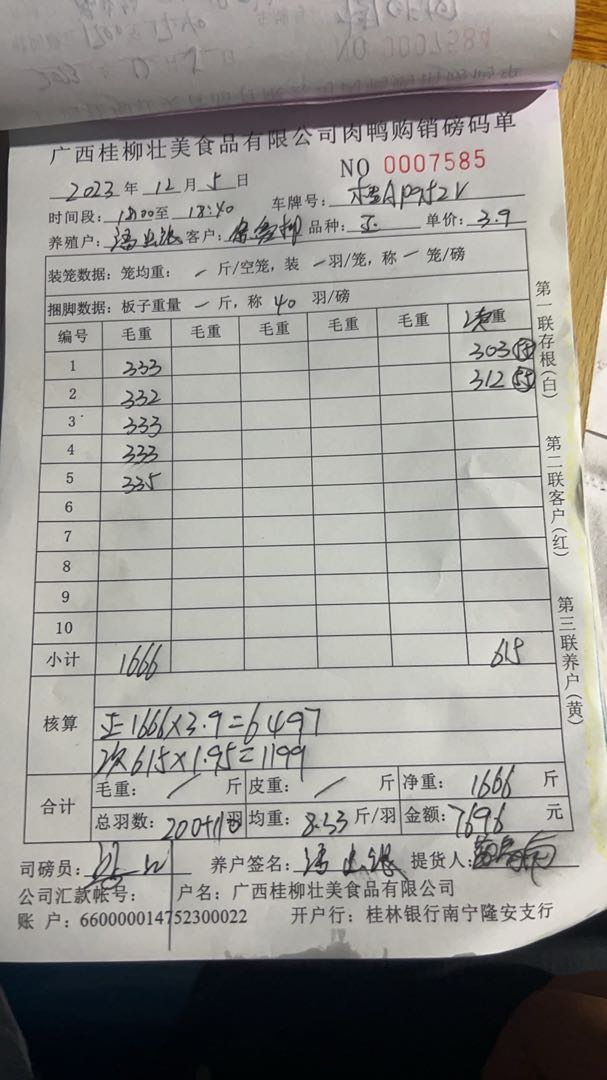 NO 0007584
广西桂柳壮美食品有限公司肉鸭购销磅码单
NO 0007585
2023年12月5日
时间段：18:00至18:40 车牌号：
养殖户： 客户： 品种：正 单价：3.9
装笼数据：笼均重：/斤/空笼，装/羽/笼，称/笼/磅
捆脚数据：板子重量/斤，称40羽/磅
编号 毛重 毛重 毛重 毛重 毛重 次重
1 333 303
2 332 312 55
3 333
4 333
5 335
6
7
8
9
10
小计 1666 615
核算
正1666×3.9=6497
次615×1.95=1199
合计 毛重：/斤 皮重：/斤 净重：1666斤
总羽数：200+110 羽 均重：8.33斤/羽 金额：7696元
司磅员： 养户签名： 提货人：
公司汇款帐号： 户名：广西桂柳壮美食品有限公司
账户：660000014752300022 开户行：桂林银行南宁隆安支行
第一联存根(白)
第二联客户(红)
第三联养户(黄)